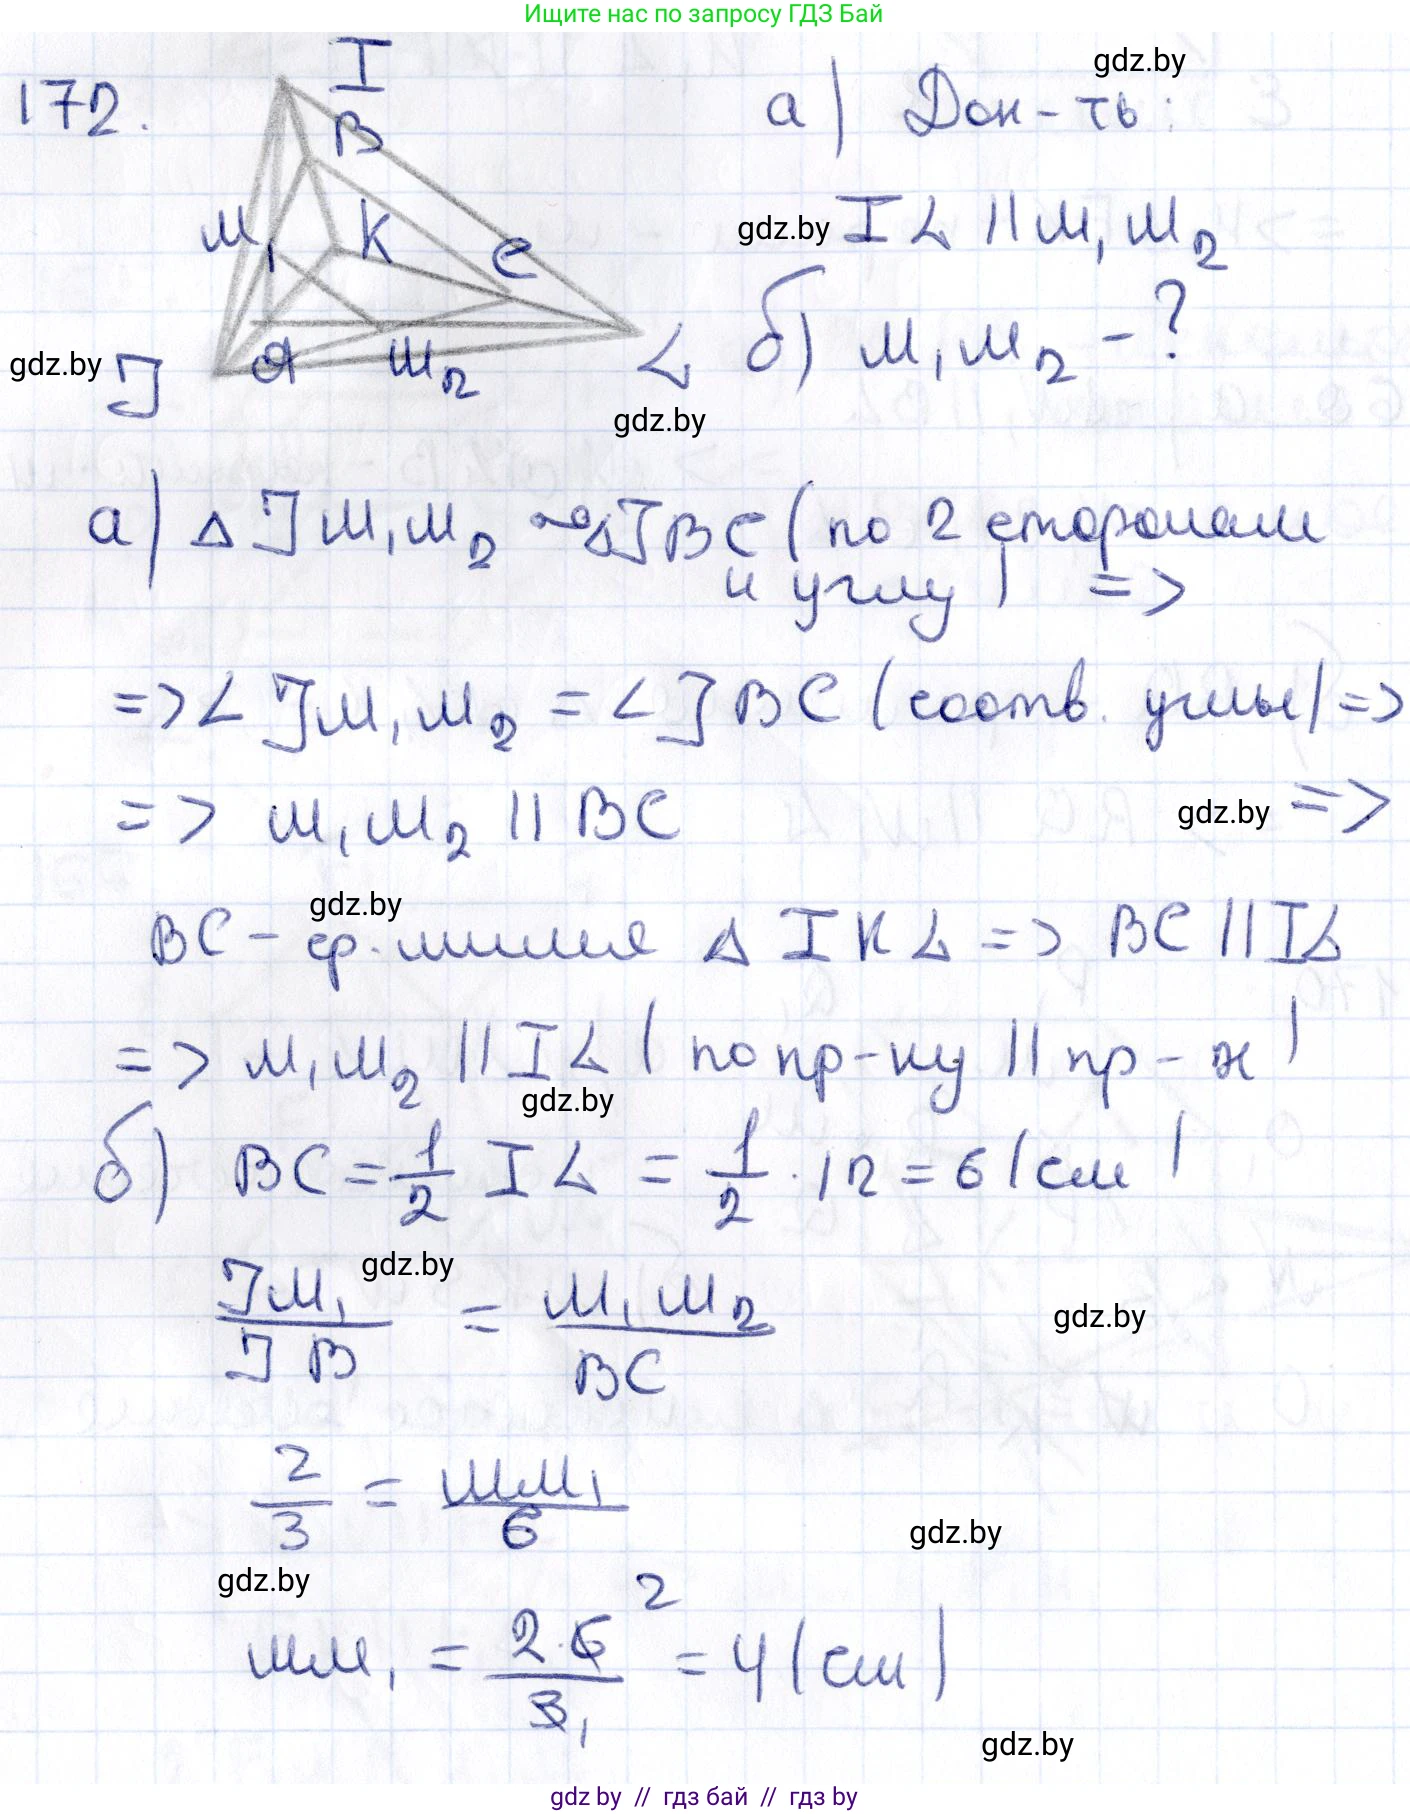 Ищите нас по запросу ГДЗ Бай
172.
I
B
M₁
K
C
J
A
M₂
L
gdz.by
а) Док-ть:
gdz.by
IL || M₁M₂
б) M₁M₂ - ?
gdz.by
gdz.by
а) Δ JM₁M₂ ~ ΔJBC (по 2 сторонам
и углу) =>
=> ∠ JM₁M₂ = ∠ JBC (соотв. углы) =>
=> M₁M₂ || BC gdz.by =>
gdz.by
BC - ср. линия Δ IKL => BC || IL
=> M₁M₂ || IL (по пр-ку || пр-х)
gdz.by
б) BC = 1/2 IL = 1/2 · 12 = 6 (см)
gdz.by
JM₁/JB = M₁M₂/BC
gdz.by
2/3 = MM₁/6
gdz.by
gdz.by
MM₁ = 2·6 2/3 1 = 4 (см)
gdz.by
gdz.by // гдз бай // гдз by